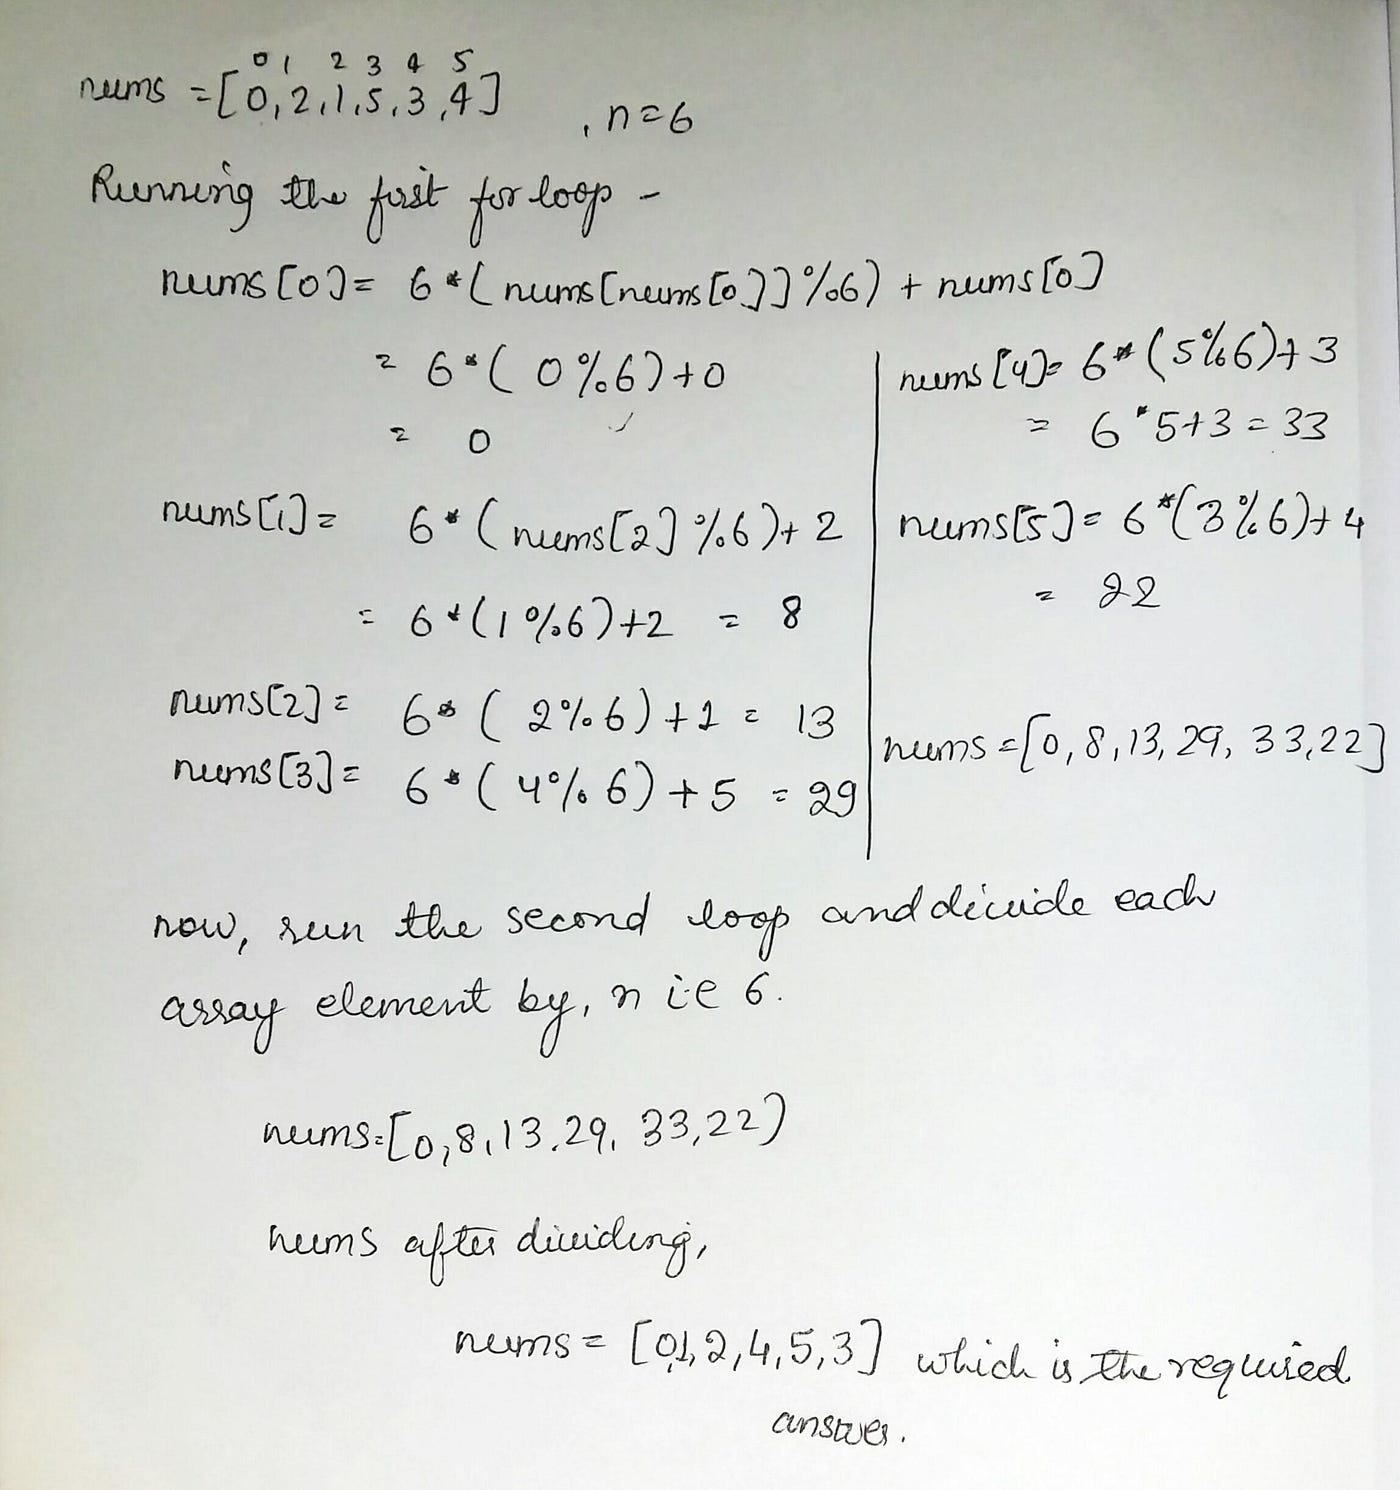 0 1 2 3 4 5
nums = [0, 2, 1, 5, 3, 4] , n = 6
Running the first for loop -
nums[0] = 6 * ( nums[nums[0]] % 6) + nums[0]
= 6 * ( 0 % 6) + 0
= 0
nums[1] = 6 * ( nums[2] % 6) + 2
= 6 * (1 % 6) + 2 = 8
nums[2] = 6 * ( 2 % 6) + 1 = 13
nums[3] = 6 * ( 4 % 6) + 5 = 29
nums[4] = 6 * (5 % 6) + 3
= 6 * 5 + 3 = 33
nums[5] = 6 * (3 % 6) + 4
= 22
nums = [0, 8, 13, 29, 33, 22]
now, run the second loop and divide each
array element by, n i.e 6.
nums = [0, 8, 13, 29, 33, 22)
nums after dividing,
nums = [0, 1, 2, 4, 5, 3] which is the required
answer.